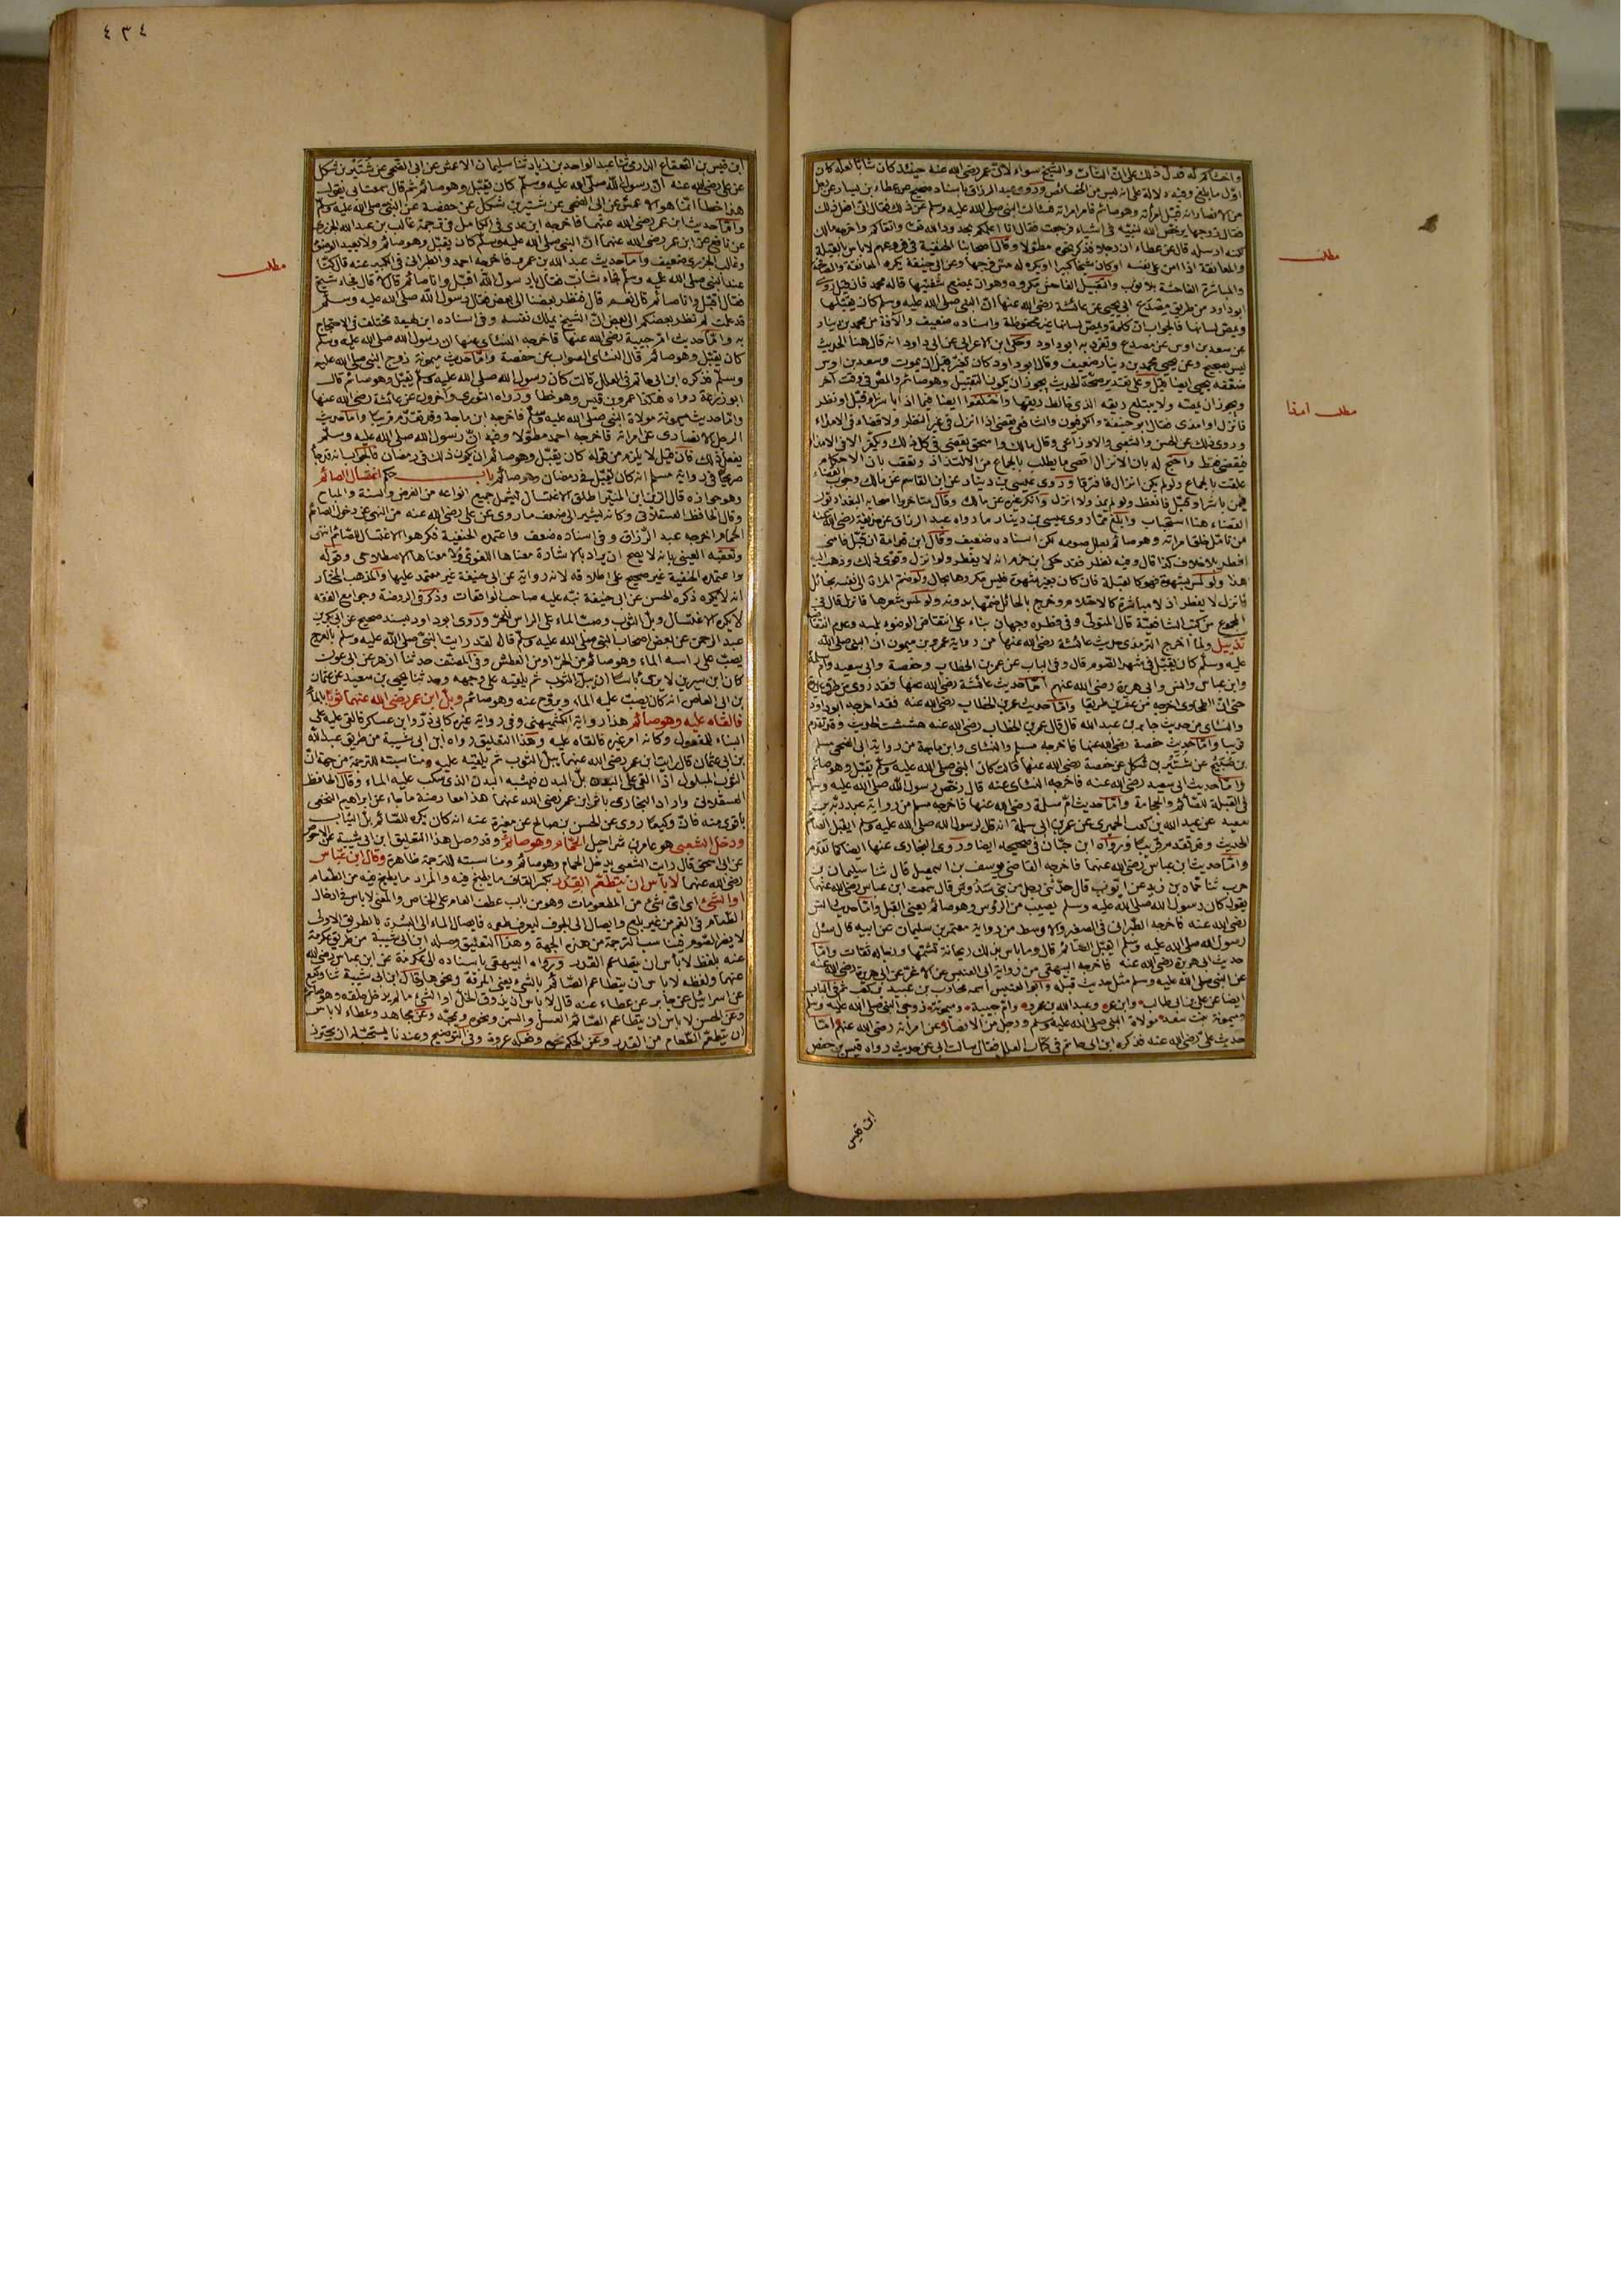 واخشاكم له فدل ذلك على ان الشاب والشيخ سواء لان عمر رضي الله عنه حينئذ كان شابا لعله كان
اول ما بلغ وفيه دلالة على انه ليس من الخصائص وروى عبد الرزاق باسناد صحيح عن عطاء بن يسار عن رجل
من الانصار انه قبل امرأته وهو صائم فامر امرأته فسألت النبي صلى الله عليه وسلم عن ذلك فقال اني افعل ذلك
فقال زوجها يرخص الله لنبيه في اشياء فرجعت فقال انا اعلمكم بحدود الله واتقاكم واخرجه مالك
لكنه ارسله قال عن عطاء ان رجلا فذكر نحوه مطولا وقال اصحابنا الحنفية في فروعهم لا بأس بالقبلة
والمعانقة اذا امن على نفسه او كان شيخا كبيرا ويكره له مس فرجها وعن ابي حنيفة يكره المعانقة والمصافحة
والمباشرة الفاحشة بلا ثوب والتقبيل الفاحش مكروه وهو ان يمضغ شفتيها قاله محمد فان قيل روى
ابو داود من طريق مصدع ابي يحيى عن عائشة رضي الله عنها ان النبي صلى الله عليه وسلم كان يقبلها
ويمص لسانها فالجواب ان كلمة ويمص لسانها غير محفوظة واسناده ضعيف والآفة من محمد بن دينار
عن سعد بن اوس عن مصدع وتفرد به ابو داود وحكى ابن الاعرابي عن ابي داود انه قال هذا الحديث
ليس بصحيح وعن يحيى محمد بن دينار ضعيف وقال ابو داود كان تغير قبل ان يموت وسعد بن اوس
ضعفه يحيى ايضا قيل وعلى تقدير صحة الحديث يجوز ان يكون التقبيل وهو صائم والمص في وقت آخر
ويجوز ان يمصه ولا يبتلع ريقه الذي خالط ريقها واختلفوا ايضا فيما اذا باشر او قبل او نظر
فانزل او امذى فقال ابو حنيفة والكوفيون والشافعي يقضي اذا انزل في غير النظر ولا قضاء في الامذاء
وروى ذلك عن الحسن والشعبي والاوزاعي وقال مالك واسحق يقضي في كل ذلك ويكفر الا في الامذاء
فيقضي فقط واحتج له بان الانزال اقصى ما يطلب بالجماع من الالتذاذ وتعقب بان الاحكام
علقت بالجماع ولو لم يكن انزال فافترقا وروى عيسى بن دينار عن ابن القاسم عن مالك وجوب القضاء
فيمن باشر او قبل فانعظ ولو لم يمذ ولا انزل وانكره غيره عن مالك
من تأمل خلق امرأته وهو صائم بطل صومه لكن اسناده ضعيف وقال ابن قدامة ان قبل فامنى
افطر بلا خلاف كذا قال وفيه نظر فقد حكى ابن حزم انه لا يفطر ولو انزل وقوى ذلك وذهب اليه
هذا ولو لمس بشهوة فهو كالقبلة فان كان بغير شهوة فليس مكروها بحال ولو ضم المرأة الى نفسه بحائل
فانزل لا يفطر اذ لا مباشرة كالاحتلام وخرج بالحائل ضمها بدونه ولو لمس شعرها فانزل قال في
المجموع من كتب الشافعية قال المتولي وفي فطره وجهان بناء على انتقاض الوضوء بلمسه وعدم انتقاضه
تذييل ولما اخرج الترمذي حديث عائشة رضي الله عنها من رواية عمرو بن ميمون ان النبي صلى الله
عليه وسلم كان يقبل في شهر الصوم قال وفي الباب عن عمر بن الخطاب وحفصة وابي سعيد وام سلمة
وابن عباس وانس وابي هريرة رضي الله عنهم اما حديث عائشة رضي الله عنها فقد روى من طرق عديدة
حتى ان الطحاوي اخرجه من عشرين طريقا واما حديث عمر بن الخطاب رضي الله عنه فقد اخرجه ابو داود
والنسائي من حديث جابر بن عبد الله قال قال عمر بن الخطاب رضي الله عنه هششت الحديث وقد تقدم
قريبا واما حديث حفصة رضي الله عنها فاخرجه مسلم والنسائي وابن ماجة من رواية ابي الضحى مسلم
بن صبيح عن شتير بن شكل عن حفصة رضي الله عنها قالت كان النبي صلى الله عليه وسلم يقبل وهو صائم
واما حديث ابي سعيد رضي الله عنه فاخرجه النسائي عنه قال رخص رسول الله صلى الله عليه وسلم
في القبلة للصائم والحجامة واما حديث ام سلمة رضي الله عنها فاخرجه مسلم من رواية عبد ربه بن
سعيد عن عبد الله بن كعب الحميري عن عمر بن ابي سلمة انه قال لرسول الله صلى الله عليه وسلم ايقبل الصائم
الحديث وقد تقدم قريبا ورواه ابن حبان في صحيحه ايضا وروى البخاري عنها ايضا كما تقدم
واما حديث ابن عباس رضي الله عنهما فاخرجه القاضي يوسف بن اسمعيل قال ثنا سليمان بن
حرب ثنا حماد بن زيد عن ايوب قال حدثني رجل من بني سدوس قال سمعت ابن عباس رضي الله عنهما
يقول كان رسول الله صلى الله عليه وسلم يصيب من الرؤس وهو صائم يعني القبل واما حديث انس
رضي الله عنه فاخرجه الطبراني في الصغير والاوسط من رواية معتمر بن سليمان عن ابيه قال سئل
رسول الله صلى الله عليه وسلم ايقبل الصائم قال وما بأس بذلك ريحانة يشمها ورجاله ثقات واما
حديث ابي هريرة رضي الله عنه فاخرجه البيهقي من رواية ابي العنبس عن الاغر عن ابي هريرة رضي الله عنه
عن النبي صلى الله عليه وسلم مثل حديث قبله وابو العنبس اسمه محارب بن عبيد بن كعب ثم في الباب
ايضا عن علي بن ابي طالب وابن عمر وعبد الله بن عمرو وام حبيبة وميمونة زوجي النبي صلى الله عليه وسلم
وميمونة بنت سعد مولاة النبي صلى الله عليه وسلم ورجل من الانصار عن امرأته رضي الله عنهم اما
حديث علي رضي الله عنه فذكره ابن ابي حاتم في كتاب العلل فقال سألت ابي عن حديث رواه قيس بن حفص
مطلب
مطلب امذا
ابن قيس
٤٣٤
ابن قيس بن القعقاع الدارمي ثنا عبد الواحد بن زياد ثنا سليمان الاعمش عن ابي الضحى عن شتير بن شكل
عن علي رضي الله عنه ان رسول الله صلى الله عليه وسلم كان يقبل وهو صائم ثم قال سمعت ابي يقول
هذا خطأ انما هو الاعمش عن ابي الضحى عن شتير بن شكل عن حفصة عن النبي صلى الله عليه وسلم
واما حديث ابن عمر رضي الله عنهما فاخرجه ابن عدي في الكامل في ترجمة غالب بن عبد الله الجزري
عن نافع عن ابن عمر رضي الله عنهما ان النبي صلى الله عليه وسلم كان يقبل وهو صائم ولا يعيد الوضوء
وغالب الجزري ضعيف واما حديث عبد الله بن عمرو فاخرجه احمد والطبراني في الكبير عنه قال كنا
عند النبي صلى الله عليه وسلم فجاء شاب فقال يا رسول الله اقبل وانا صائم قال لا قال فجاء شيخ
فقال اقبل وانا صائم قال نعم قال فنظر بعضنا الى بعض فقال رسول الله صلى الله عليه وسلم
قد علمت لم نظر بعضكم الى بعض ان الشيخ يملك نفسه وفي اسناده ابن لهيعة مختلف في الاحتجاج
به واما حديث ام حبيبة رضي الله عنها فاخرجه النسائي عنها ان رسول الله صلى الله عليه وسلم
كان يقبل وهو صائم قال النسائي الصواب عن حفصة واما حديث ميمونة زوج النبي صلى الله عليه
وسلم فذكره ابن ابي حاتم في العلل قالت كان رسول الله صلى الله عليه وسلم يقبل وهو صائم قال
ابو زرعة رواه هكذا عمرو بن قيس وهو خطأ ورواه الثوري وآخرون عن عائشة رضي الله عنها
واما حديث ميمونة مولاة النبي صلى الله عليه وسلم فاخرجه ابن ماجة وقد تقدم قريبا واما حديث
الرجل الانصاري عن امرأته فاخرجه احمد مطولا وفيه ان رسول الله صلى الله عليه وسلم
يفعل ذلك فان قيل لا يلزم من قوله كان يقبل وهو صائم ان يكون ذلك في رمضان فالجواب انه قد جاء
صريحا في رواية مسلم انه كان يقبل في رمضان وهو صائم باب حكم اغتسال الصائم
وهو جوازه قال الزين ابن المنير اطلق الاغتسال ليشمل جميع انواعه من الفرض والسنة والمباح
وقال الحافظ العسقلاني وكأنه يشير الى ضعف ما روى عن علي رضي الله عنه من النهي عن دخول الصائم
الحمام اخرجه عبد الرزاق وفي اسناده ضعف واعتمده الحنفية فكرهوا الاغتسال للصائم انتهى
وتعقبه العيني بانه لا يصح ان يراد بالاشارة معناها اللغوي ولا معناها الاصطلاحي وقوله
واعتمده الحنفية غير صحيح على اطلاقه لانه رواية عن ابي حنيفة غير معتمد عليها والمذهب المختار
انه لا يكره ذكره الحسن عن ابي حنيفة نبه عليه صاحب الواقعات وذكر في الروضة وجوامع الفقه
لا يكره الاغتسال وبل الثوب وصب الماء على الرأس للحر وروى ابو داود بسند صحيح عن ابي بكر بن
عبد الرحمن عن بعض اصحاب النبي صلى الله عليه وسلم قال لقد رايت النبي صلى الله عليه وسلم بالعرج
يصب على رأسه الماء وهو صائم من الحر او من العطش وفي المصنف حدثنا ازهر عن ابن عون
كان ابن سيرين لا يرى بأسا ان يبل الثوب ثم يلقيه على وجهه وحدثنا يحيى بن سعيد عن عثمان
بن ابي العاص انه كان يصب عليه الماء ويروح عنه وهو صائم وبل ابن عمر رضي الله عنهما ثوبا بالماء
فالقاه عليه وهو صائم هذا رواية الكشميهني وفي رواية غيره كابي ذر وابن عساكر فالقي عليه على
البناء للمفعول وكأنه امر غيره فالقاه عليه وهذا التعليق رواه ابن ابي شيبة من طريق عبد الله
بن ابي عثمان قال رايت ابن عمر رضي الله عنهما يبل الثوب ثم يلقيه عليه ومناسبته للترجمة من جهة ان
الثوب المبلول اذا القي على البدن بل البدن فيشبه البدن الذي سكب عليه الماء وقال الحافظ
العسقلاني واراد البخاري باثر ابن عمر رضي الله عنهما هذا معارضة ما جاء عن ابراهيم النخعي
باقوى منه فان وكيعا روى عن الحسن بن صالح عن مغيرة عنه انه كان يكره للصائم بل الثياب
ودخل الشعبي هو عامر بن شراحيل الحمام وهو صائم وقد وصل هذا التعليق ابن ابي شيبة عن الاحوص
عن ابي اسحق قال رايت الشعبي يدخل الحمام وهو صائم ومناسبته للترجمة ظاهرة وقال ابن عباس
رضي الله عنهما لا بأس ان يتطعم القدر بكسر القاف ما يطبخ فيه والمراد ما يطبخ فيه من الطعام
او الشيء اي اي شيء من المطعومات وهو من باب عطف العام على الخاص والمعنى لا بأس في ادخال
الطعام في الفم من غير بلع وايصال الى الجوف ليعرف طعمه فايصال الماء الى البشرة بالطريق الاولى
لا يضر الصوم فيناسب الترجمة من هذه الجهة وهذا التعليق وصله ابن ابي شيبة من طريق عكرمة
عنه بلفظ لا بأس ان يتطاعم القدر ورواه البيهقي باسناده الى عكرمة عن ابن عباس رضي الله
عنهما ولفظه لا بأس ان يتطاعم الصائم بالشيء يعني المرقة ونحوها وقال ابن ابي شيبة ثنا وكيع
عن اسرائيل عن جابر عن عطاء عنه قال لا بأس ان يذوق الخل او الشيء ما لم يدخل حلقه وهو صائم
وعن الحسن لا بأس ان يتطاعم الصائم العسل والسمن ونحوه ويمجه وعن مجاهد وعطاء لا بأس
ان يتطعم الطعام من القدر وعن الحكم نحوه وفعله عروة وفي التوضيح وعندنا يستحب له ان يحترز
مطلب